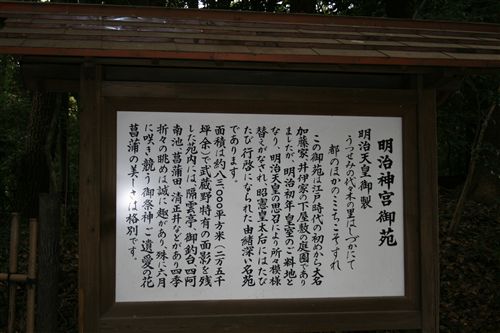 明治神宮御苑
明治天皇御製
うつせみの代々木の里はしづかにて
都のほかのここちこそすれ
この御苑は江戸時代の初めから大名
加藤家、井伊家の下屋敷の庭園であり
ましたが、明治初年皇室のご料地と
なり、明治天皇の思召により所々模様
替えがなされ、昭憲皇太后にはたび
たび行啓になられた由緒深い名苑
であります。
面積は約八三、〇〇〇平方米(二万五千
坪余)で武蔵野特有の面影を残
した苑内には、隔雲亭、御釣台、四阿、
南池、菖蒲田、清正井などがあり四季
折々の眺めは誠に趣があり、殊に六月
に咲き競う御祭神ご遺愛の花
菖蒲の美しさは格別です。